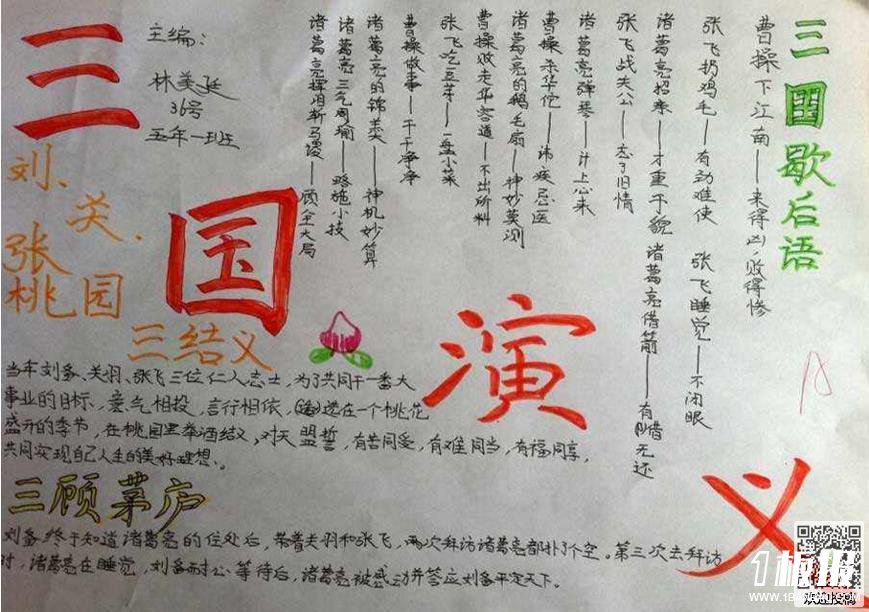 三国演义
主编：
林美延
36号
五年一班
三国歇后语
曹操下江南——来得凶，败得惨
张飞扔鸡毛——有劲难使
张飞睡觉——不闭眼
诸葛亮招亲——才重于貌
诸葛亮借箭——有借无还
张飞战关公——忘了旧情
诸葛亮弹琴——计上心来
曹操杀华佗——讳疾忌医
诸葛亮的鹅毛扇——神妙莫测
曹操败走华容道——不出所料
张飞吃豆芽——一盘小菜
曹操做事——干干净净
诸葛亮的锦囊——神机妙算
诸葛亮三气周瑜——略施小技
诸葛亮挥泪斩马谡——顾全大局
刘、关、
张
桃园
三结义
当年刘备、关羽、张飞三位仁人志士，为了共同干一番大
事业的目标、意气相投，言行相依，选在一个桃花
盛开的季节，在桃园里举酒结义，对天盟誓，有苦同受，有难同当，有福同享，
共同实现自己人生的美好理想、。
三顾茅庐
刘备终于知道诸葛亮的住处后，带着关羽和张飞，两次拜访诸葛亮都扑了个空。第三次去拜访
时，诸葛亮在睡觉，刘备耐心等待后，诸葛亮被感动并答应刘备平定天下。
1板报
欢迎投稿